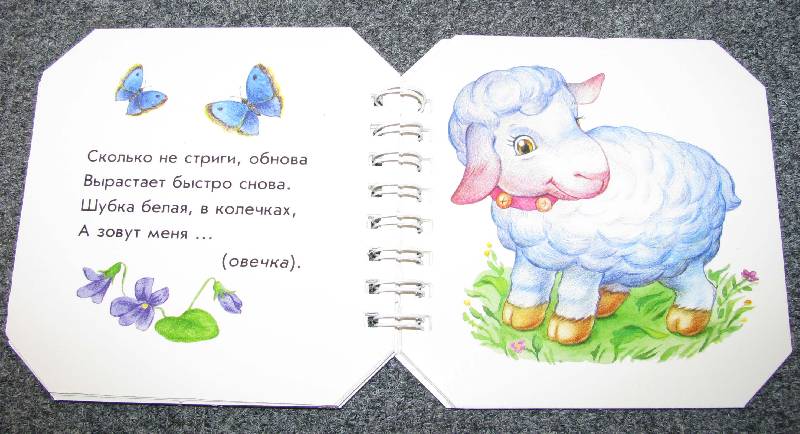 Сколько не стриги, обнова
Вырастает быстро снова.
Шубка белая, в колечках,
А зовут меня ...
(овечка).